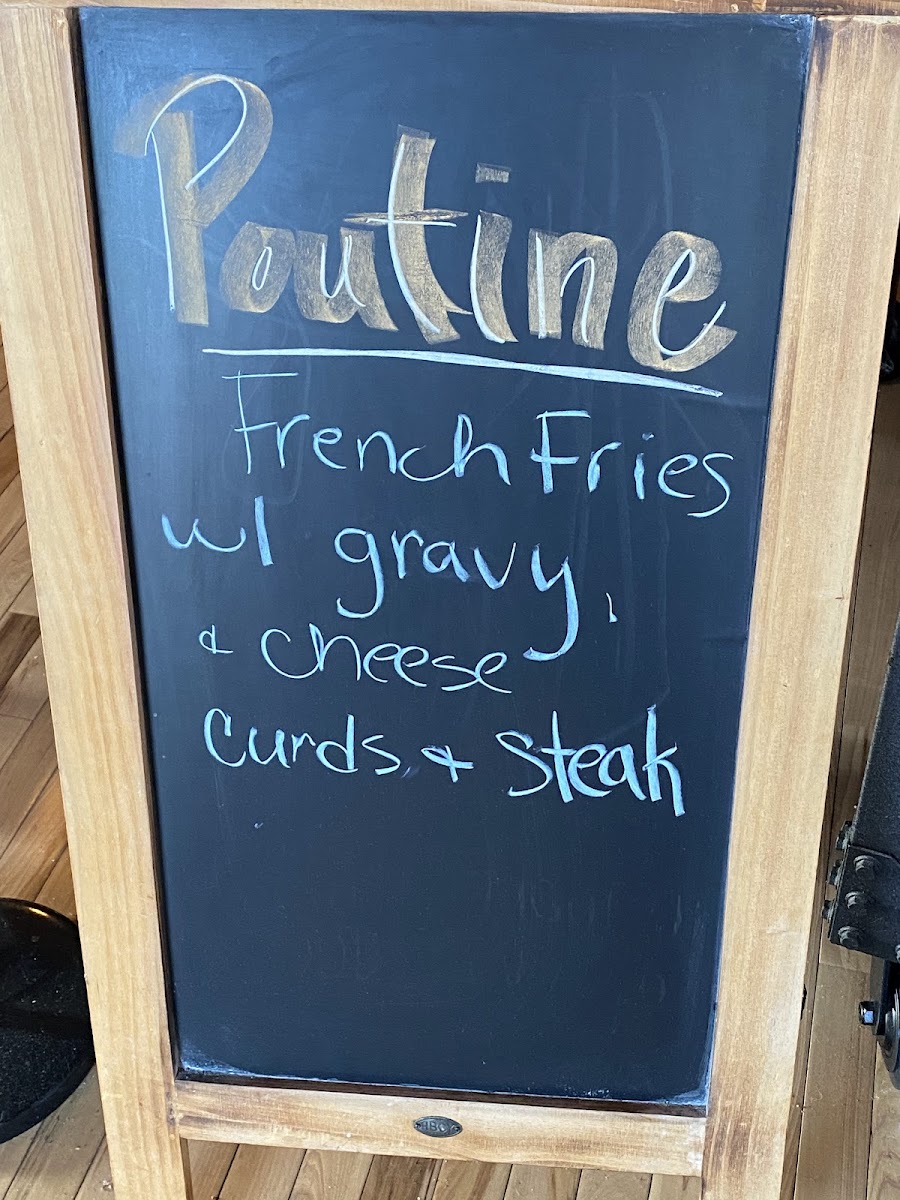 Poutine
French Fries
w/ gravy,
& cheese
curds, & steak